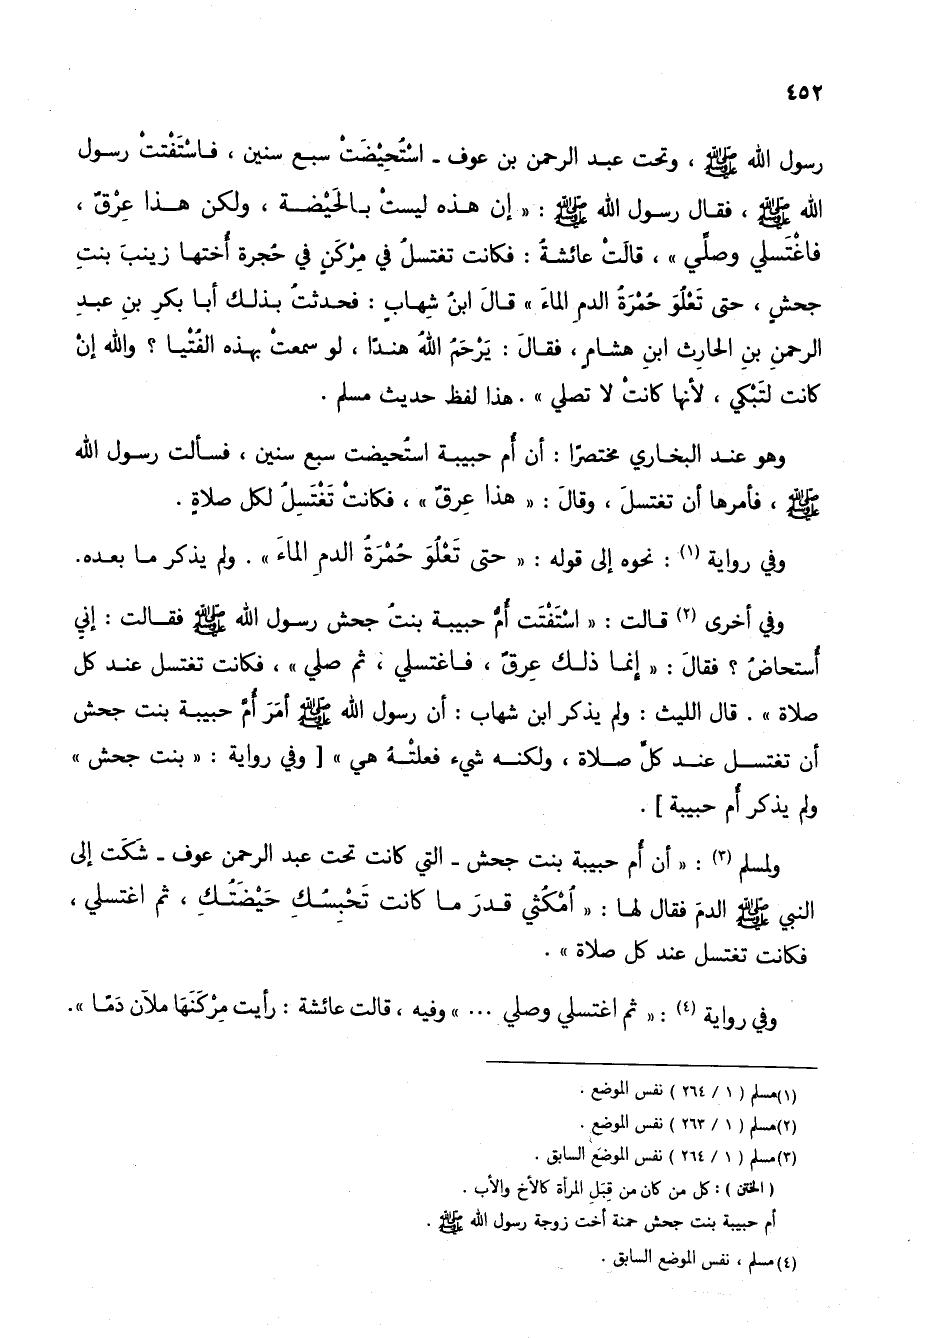 ٤٥٢
رسول الله ﷺ ، وتحت عبد الرحمن بن عوف ـ اسْتُحِيْضَتْ سبع سنين ، فـاسْتَفْتتْ رسول
الله ﷺ ، فقـال رسول الله ﷺ : « إن هـذه ليستْ بـالحَيْضـة ، ولكن هـذا عِرْقٌ ،
فاغْتَسلي وصلِّي » ، قالَتْ عائشةُ : فكانت تغتسلُ في مِرْكَنٍ في حُجرة أُختهـا زينبَ بنتِ
جحشٍ ، حتى تَعْلُوَ حُمْرَةُ الدمِ الماءَ » قـالَ ابنُ شِهابٍ : فحدثتُ بـذلـك أبـا بكرِ بنِ عبـدِ
الرحمنِ بنِ الحارثِ ابنِ هشـامٍ ، فقـالَ : يَرْحَمُ اللهُ هنـدًا ، لو سمعتْ بهـذه الفُتْيـا ؟ والله إنْ
كانت لتَبْكي ، لأنها كانتْ لا تصلي » . هذا لفظ حديث مسلم .
وهو عنـد البخـاري مختصرًا : أن أُم حبيبـة استُحيضت سبع سنين ، فسـألت رسول الله
ﷺ ، فأمرها أن تغتسلَ ، وقالَ : « هذا عِرقٌ » ، فكانتْ تَغْتَسِلُ لكل صلاةٍ .
وفي رواية (١) : نحوه إلى قوله : « حتى تَعْلُوَ حُمْرَةُ الدمِ الماءَ » . ولم يذكر مـا بعده.
وفي أخرى (٢) قـالت : « اسْتَفْتَت أُمُّ حبيبـة بنتُ جحش رسول الله ﷺ فقـالت : إني
أُستحاضُ ؟ فقالَ : « إنمـا ذلـك عِرقٌ ، فـاغتسلي ، ثم صلي » ، فكانت تغتسل عنـد كل
صلاة » . قال الليث : ولم يذكر ابن شهاب : أن رسول الله ﷺ أمَرَ أُمَّ حبيبـة بنت جحش
أن تغتسـل عنـد كلِّ صـلاة ، ولكنـه شيء فعلتْـهُ هي » [ وفي رواية : « بنت جحش »
ولم يذكر أُم حبيبة ] .
ولمسلم (٣) : « أن أُم حبيبة بنت جحش ـ التي كانت تحت عبد الرحمن عوف ـ شَكَت إلى
النبي ﷺ الدمَ فقال لهـا : « اُمْكُثي قـدرَ مـا كانت تَحْبِسُـكِ حَيْضَتُـكِ ، ثم اغتسلي ،
فكانت تغتسل عند كل صلاة » .
وفي رواية (٤) : « ثم اغتسلي وصلي ... » وفيه ، قالت عائشة : رأيت مِرْكَنَهَا ملآن دَمًا ».
(١) مسلم ( ١ / ٢٦٤ ) نفس الموضع .
(٢) مسلم ( ١ / ٢٦٣ ) نفس الموضع .
(٣) مسلم ( ١ / ٢٦٤ ) نفس الموضع السابق .
( الختن ) : كل من كان من قِبَلِ المرأة كالأخ والأب .
أم حبيبة بنت جحش حمنة أخت زوجة رسول الله ﷺ .
(٤) مسلم ، نفس الموضع السابق .